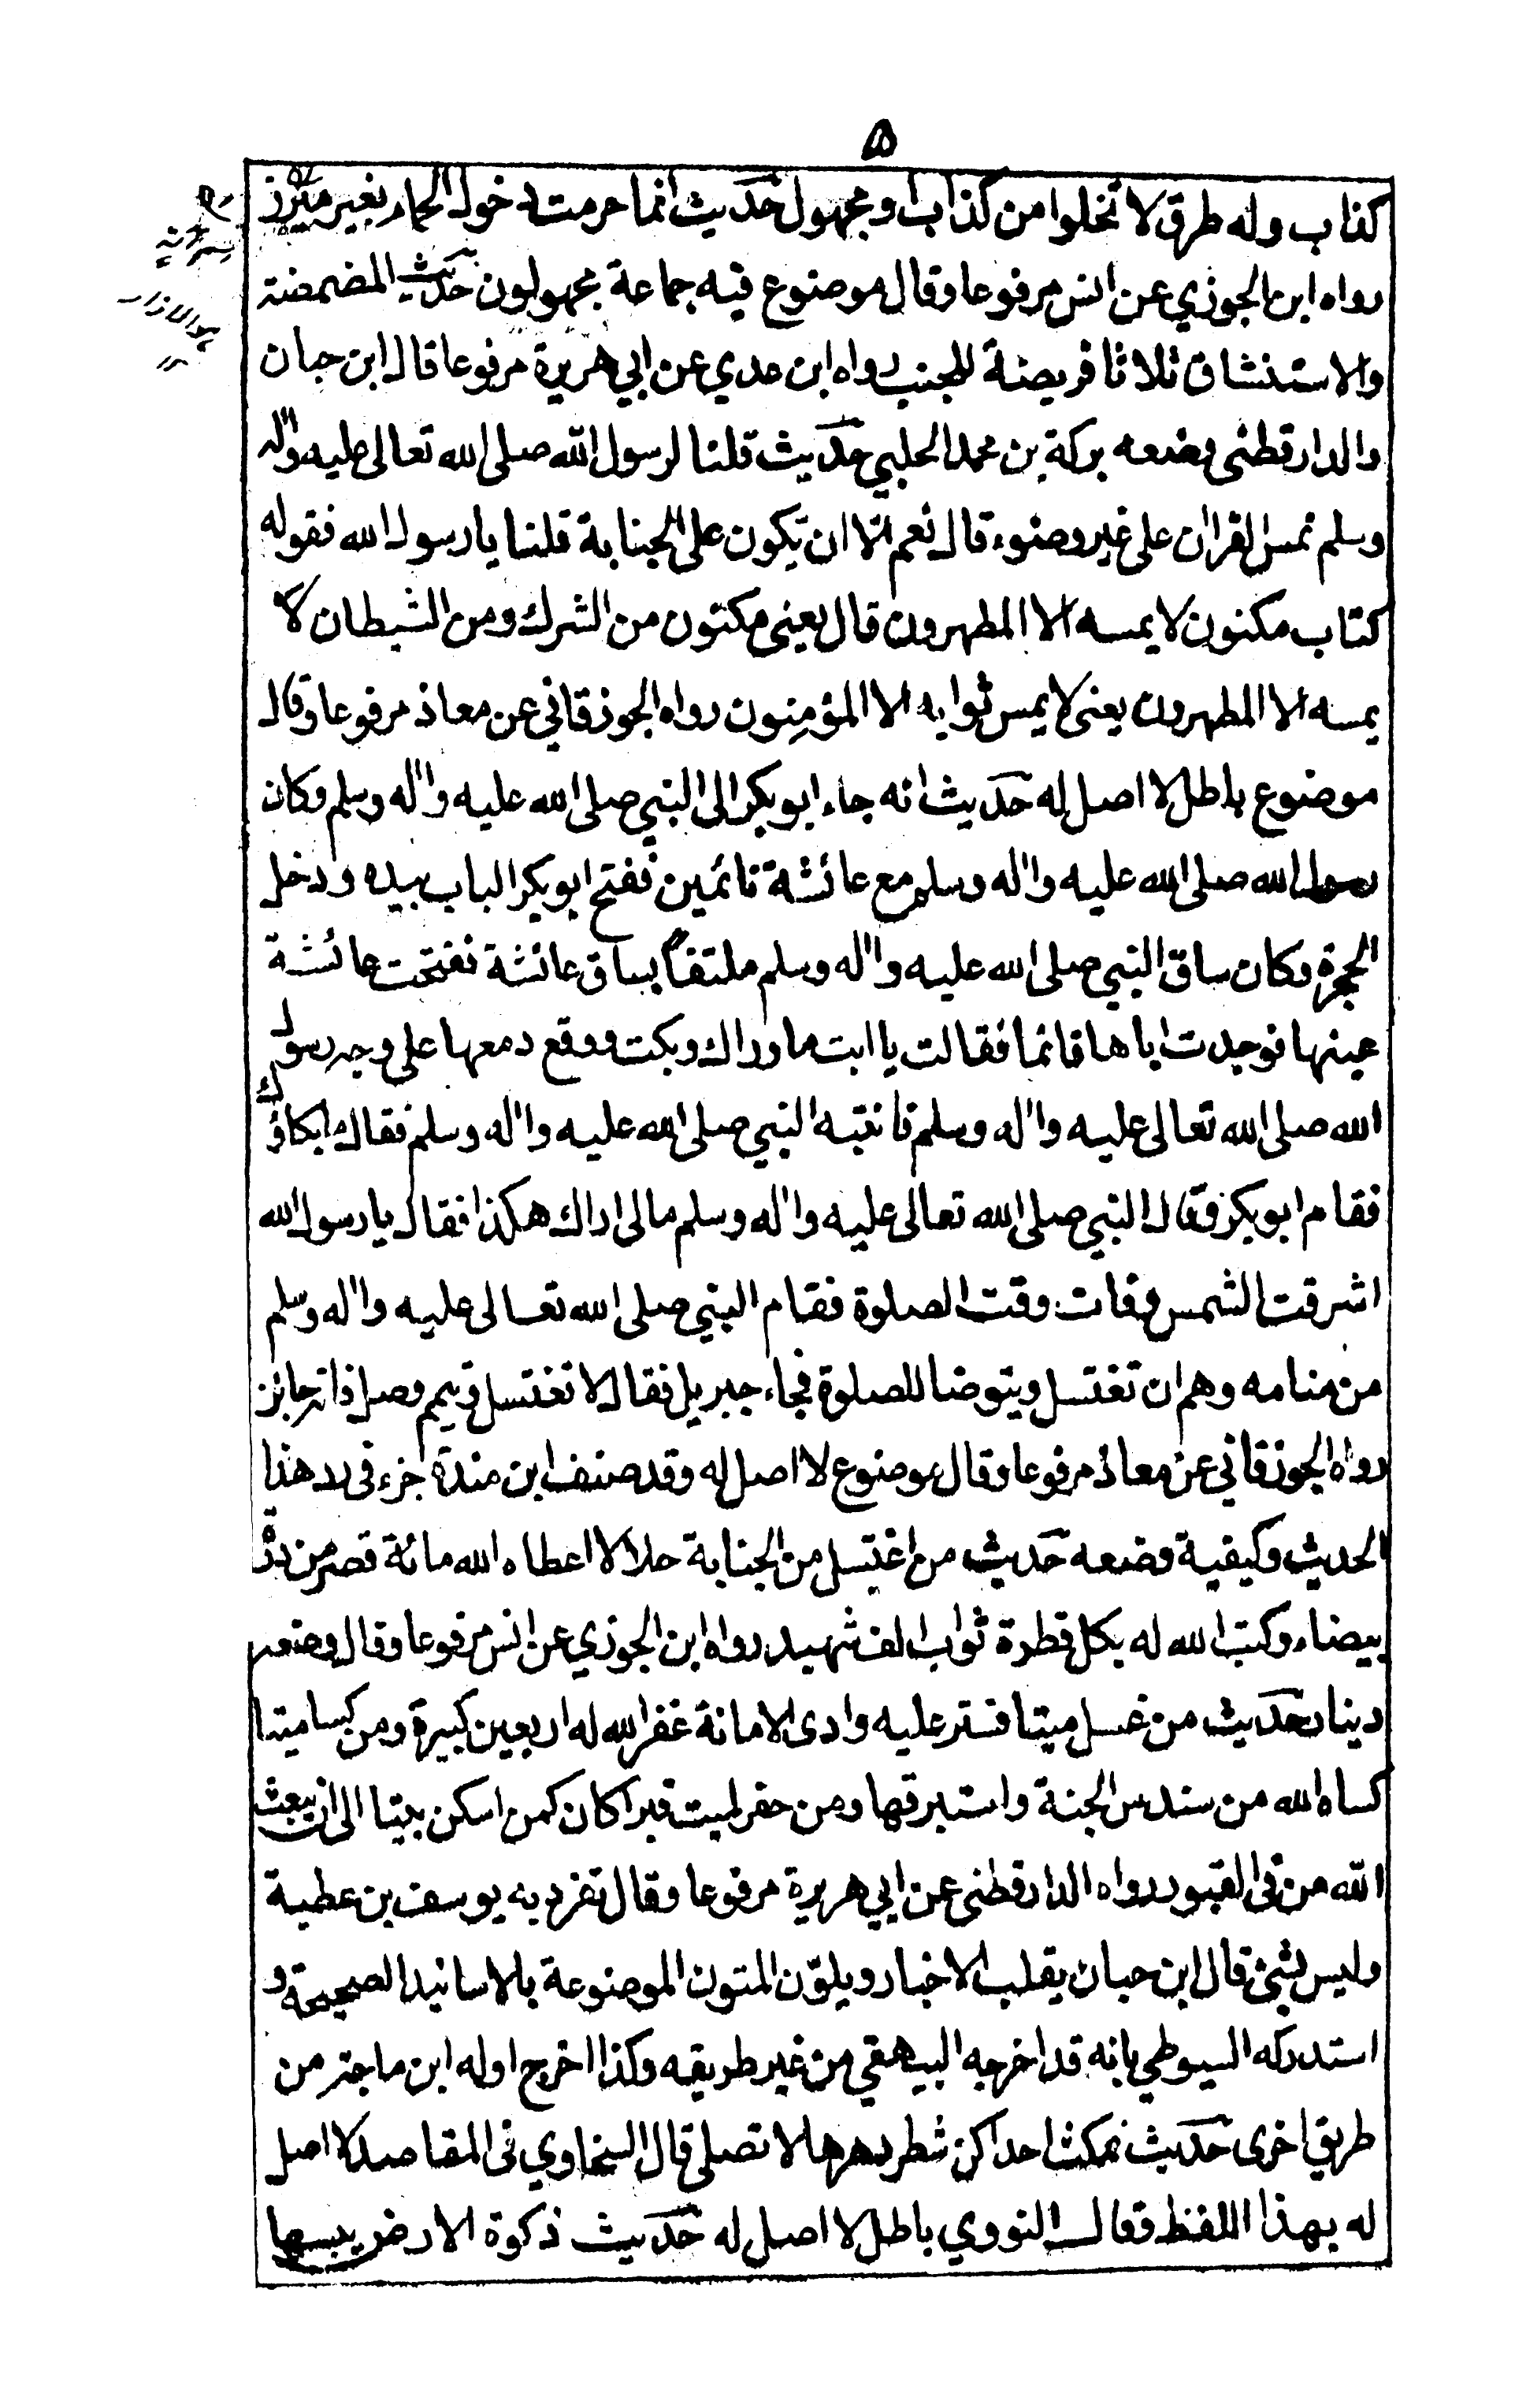 ۵
كذاب وله طرق لا تخلوا من كذاب او مجهول حديث انما حرمت دخول الحمام بغير مئزر
رواه ابن الجوزي عن انس مرفوعا وقال موضوع فيه جماعة مجهولون حديث المضمضة
والاستنشاق ثلاثا فريضة للجنب رواه ابن عدي عن ابي هريرة مرفوعا قال ابن حبان
والدارقطنى وضعه بركة بن محمد الحلبي حديث قلنا لرسول الله صلى الله تعالى عليه واٰله
وسلم نمس القراٰن على غير وضوء قال نعم الّا ان تكون على الجنابة قلنا يا رسول الله فقوله
كتاب مكنون لا يمسه الا المطهرون قال يعنى مكتون من الشرك ومن الشيطان لا
يمسه الا المطهرون يعنى لا يمس ثوابه الا المؤمِنون رواه الجوزقاني عن معاذ مرفوعا وقال
موضوع باطل لا اصل له حديث انه جاء ابو بكر الى النبي صلى الله عليه واٰله وسلم وكان
رسول الله صلى الله عليه واٰله وسلم مع عائشة نائمين ففتح ابو بكر الباب بيده ودخل
الحجرة وكان ساق النبي صلى الله عليه واٰله وسلم ملتفاً بساق عائشة ففتحت عائشة
عينها فوجدت اباها قائما فقالت يا ابت ما وراك وبكت ووقع دمعها على وجه رسول
الله صلى الله تعالى عليه واٰله وسلم فانتبه النبي صلى الله عليه واٰله وسلم فقال ابكاؤك
فقام ابو بكر فقال النبي صلى الله تعالى عليه واٰله وسلم مالى اراك هكذا فقال يا رسول الله
اشرقت الشمس وفات وقت الصلوة فقام النبي صلى الله تعالى عليه واٰله وسلم
من منامه وهم ان تغتسل ويتوضا للصلوة فجاء جبريل فقال لا تغتسل وتيمم وصل فانه جائز
رواه الجوزقاني عن معاذ مرفوعا وقال موضوع لا اصل له وقد صنف ابن مندة جزء فى رد هذا
الحديث وكيفية وضعه حديث من اغتسل من الجنابة حلالا اعطاه الله مائة قصر من درّة
بيضاء وكتب الله له بكل قطرة ثواب الف شهيد رواه ابن الجوزي عن انس مرفوعا وقال وضعه
دينار حديث من غسل ميتا فستر عليه وادى الامانة غفر الله له اربعين كبيرة ومن كسا ميتا
كساه الله من سندس الجنة واستبرقها ومن حفر لميت قبرا كان كمن اسكن بيتا الى ان يبعث
الله من فى القبور رواه الدارقطنى عن ابي هريرة مرفوعا وقال تفرد به يوسف بن عطية
وليس بشئ قال ابن حبان يقلب الاخبار ويلوّن المتون الموضوعة بالاسانيد الصحيحة و
استدركه السيوطي بانه قد اخرجه البيهقي من غير طريقه وكذا اخرج اوله ابن ماجة من
طريق اخرى حديث تمكث احداكن شطر دهرها لا تصلى قال السخاوي فى المقاصد لا اصل
له بهذا اللفظ فقال النووي باطل لا اصل له حديث ذكوة الارض يبسها